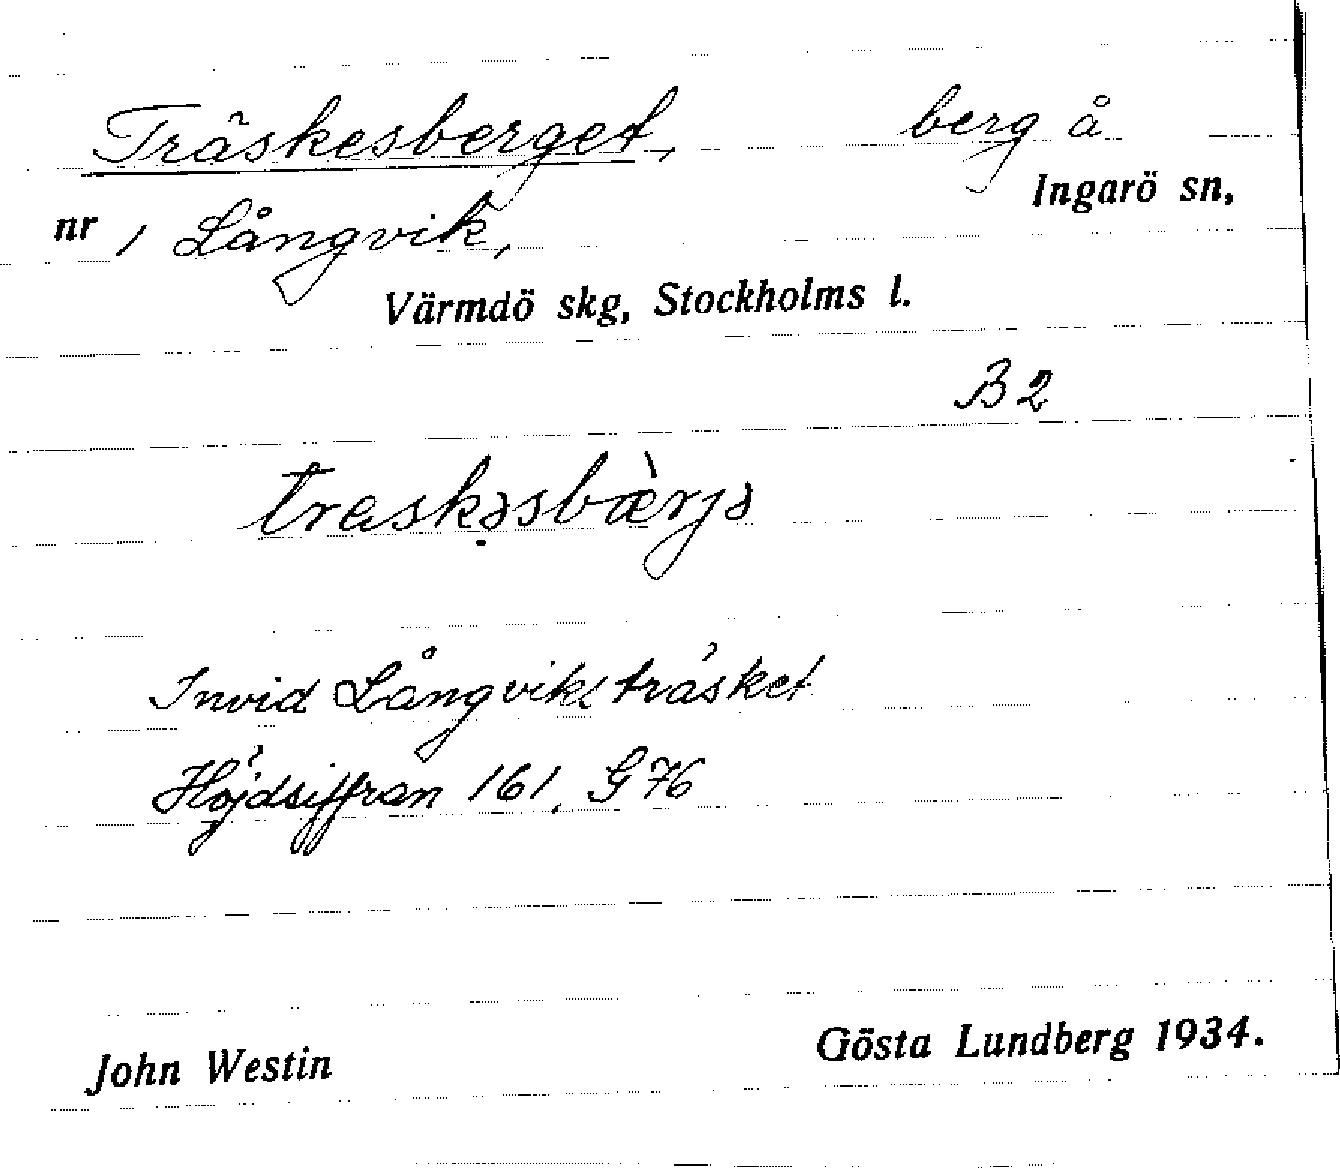 Träskesberget, berg å
Ingarö sn,
nr 1 Långvik,
Värmdö skg, Stockholms l.
B 2
traskəsbæ̀rjə
Invid Långvikträsket
Höjdsiffran 161. G 76
John Westin Gösta Lundberg 1934.